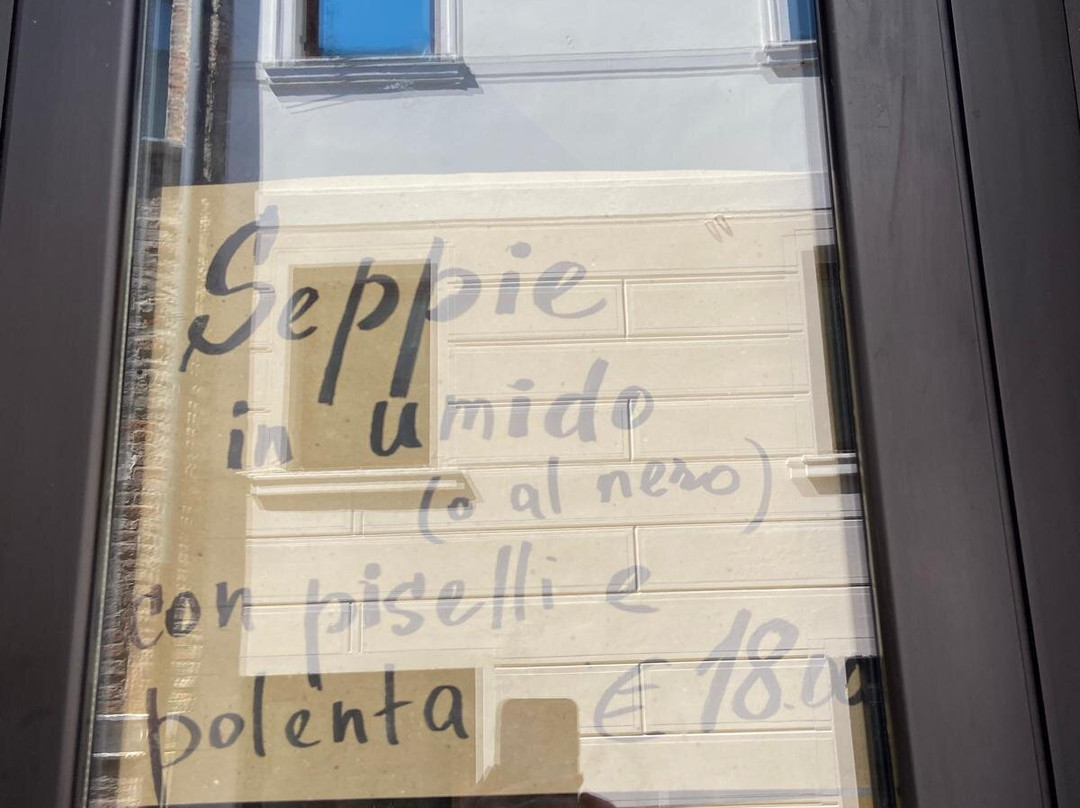 Seppie
in umido
(o al nero)
con piselli e
polenta € 18.00